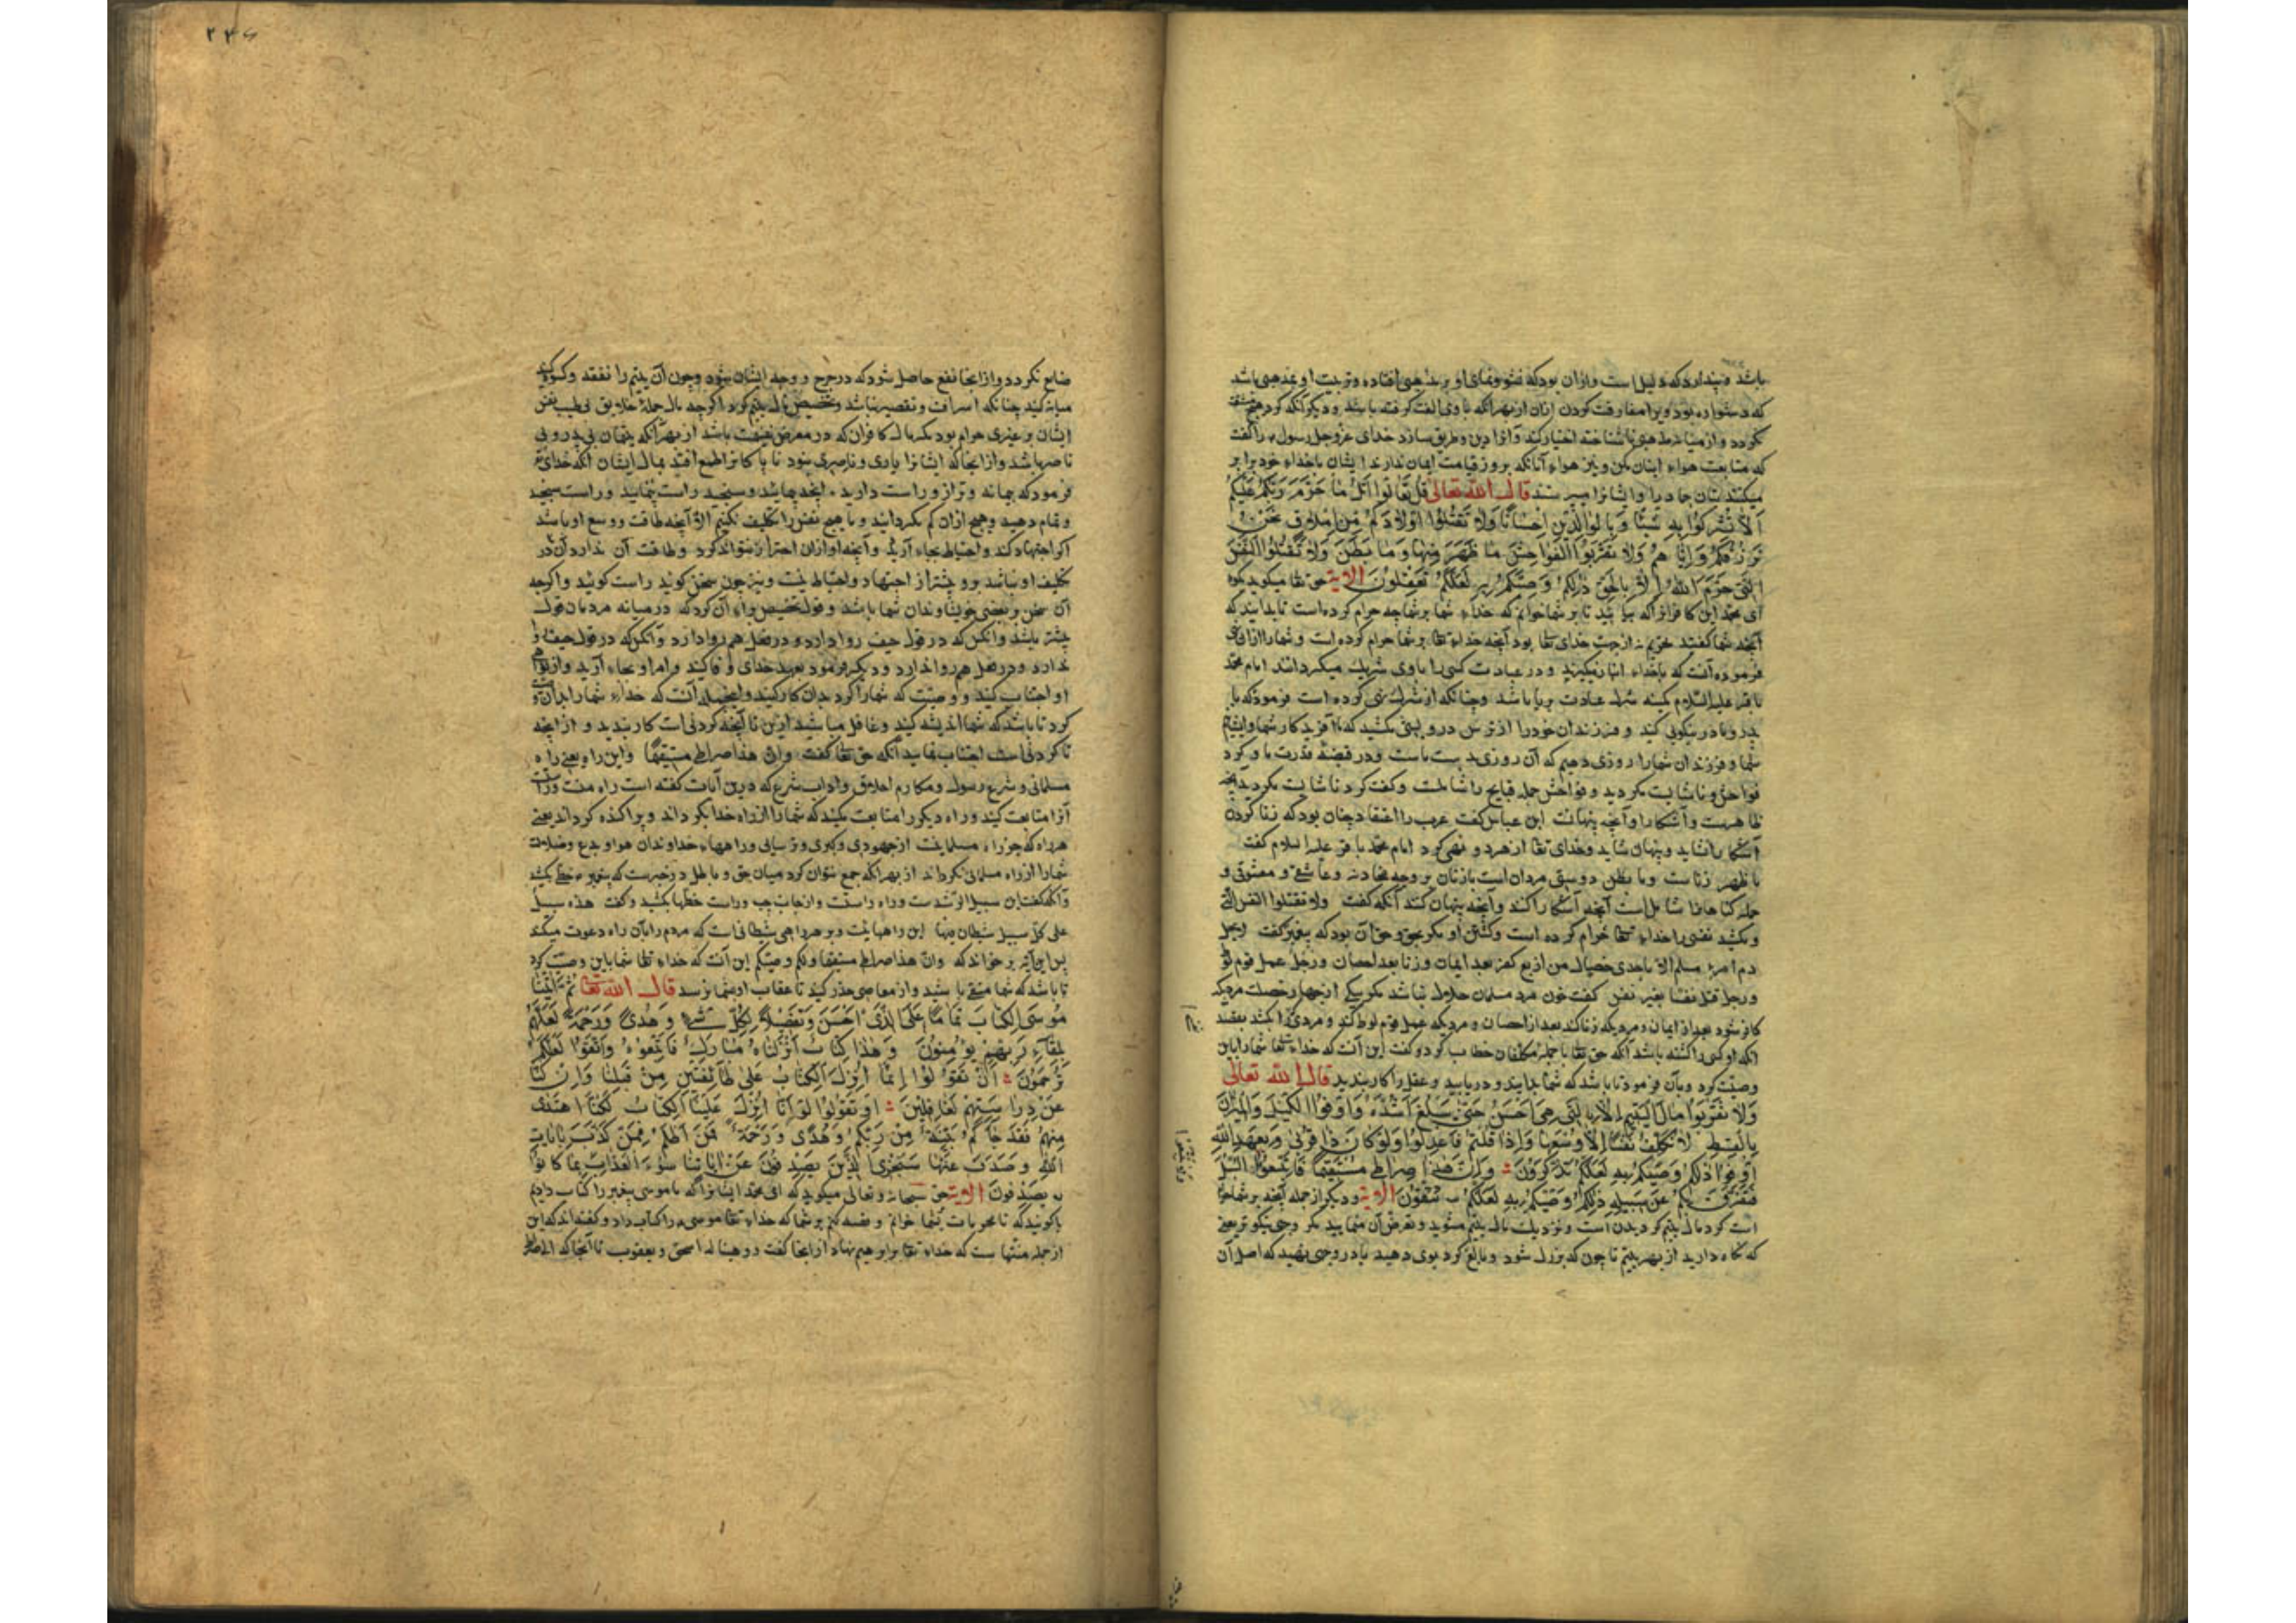 باشد و پندارد که دلیل است و ازان بود که نشو و نمای او بر مذهبی افتاده و تربیت او بمذهبی باشد
که دشواره بود ویرا مفارقت کردن ازان از بهر آنکه با وی الفت گرفته باشد و دیگر آنکه گرد
نگردد و از میانه مذهبی ناشناخته اختیار کند و آنرا دین و طریق سازد خدای عزوجل رسول را گفت
که متابعت هواء اینان مکن و نیز هواء آنانکه بروز قیامت ایمان ندارند ایشان با خداء خود برابر
میکنند بتان جماد را و ایشانرا میپرستند قال الله تعالی قُل تَعَالَوا اَتلُ مَا حَرَّمَ رَبُّکُم عَلَیکُم
اَلاَّ تُشرِکُوا بِهِ شَیئًا وَبِالوَالِدَینِ اِحسَانًا وَلَا تَقتُلُوا اَولَادَکُم مِن اِملَاقٍ نَحنُ
نَرزُقُکُم وَاِیَّاهُم وَلَا تَقرَبُوا الفَوَاحِشَ مَا ظَهَرَ مِنهَا وَمَا بَطَنَ وَلَا تَقتُلُوا النَّفسَ
الَّتِی حَرَّمَ اللهُ اِلَّا بِالحَقِّ ذٰلِکُم وَصّٰیکُم بِهِ لَعَلَّکُم تَعقِلُونَ الایة حق تعا میکوید بگوه
ای محمد این کافرانرا که بیائید تا بر شما خوانم که خداء شما بر شما چه حرام کرده است تا بدانید که
آنچه شما گفتید تحریم نه از جهت خدای تعا بود آنچه خداء تعا بر شما حرام کرده است و شما را ازان
فرموده آنست که با خداء انباز نگیرید و در عبادت کسی را با وی شریک میگردانید امام محمد
باقر علیه السلام کمینه شرک عبادت بریا باشد و چنانکه از شرک نهی کرده است فرمود که با
پدر و مادر نیکویی کنید و فرزندان خود را از ترس درویشی مکشید که ما آفریدکار شما و ایشانیم
شما و فرزندان شما را روزی دهیم که آن روزی بدست ماست و در قبضهٔ قدرت ما و گرد
فواحش و ناشایست مگردید و فواحش جمله قبایح را شاملست و گفت گرد ناشایست مگردید آنچه
ظاهرست و آشکارا و آنچه پنهانست ابن عباس گفت عرب را اعتقاد چنان بود که زنا کردن
آشکارا نشاید و پنهان شاید و خدای تعا از هر دو نهی کرد امام محمد باقر علیه السلام گفت
ما ظهر زناست و ما بطن دوستی مردان است با زنان بر وجه مخادنه و عاشقی و معشوقی و
جمله گناهانرا شامل است آنچه آشکارا کنند و آنچه پنهان کنند آنگه گفت ولا تقتلوا النفس التی
و مکشید نفسی را خداء تعا حرام کرده است و کشتن او مگر بحق و حق آن بود که پیغمبر گفت لا یحل
دم امرء مسلم الا باحدی خصال من اربع کفر بعد ایمان و زنا بعد احصان و رجل عمل قوم لوط
ورجل قتل نفسا بغیر نفس گفت خون مرد مسلمان حلال نباشد مگر بیکی از چهار خصلت مردیکه
کافر شود بعد از ایمان و مردیکه زنا کند بعد از احصان و مردیکه عمل قوم لوط کند و مردی را بکشد بعمد
انکه او کسی را کشته باشد آنگه حق تعا با جمله مکلفان خطاب کرد و گفت این آنست که خداء تعا شما را باین
وصیت کرد و بآن فرمود تا باشد که شما بدانید و دریابید و عقل را کار بندید قال الله تعالی
وَلَا تَقرَبُوا مَالَ الیَتِیمِ اِلَّا بِالَّتِی هِیَ اَحسَنُ حَتّٰی یَبلُغَ اَشُدَّهُ وَاَوفُوا الکَیلَ وَالمِیزَانَ
بِالقِسطِ لَا نُکَلِّفُ نَفسًا اِلَّا وُسعَهَا وَاِذَا قُلتُم فَاعدِلُوا وَلَو کَانَ ذَا قُربٰی وَبِعَهدِ اللهِ
اَوفُوا ذٰلِکُم وَصّٰیکُم بِهِ لَعَلَّکُم تَذَکَّرُونَ وَاَنَّ هٰذَا صِرَاطِی مُستَقِیمًا فَاتَّبِعُوهُ وَلَا تَتَّبِعُوا السُّبُلَ
فَتَفَرَّقَ بِکُم عَن سَبِیلِهِ ذٰلِکُم وَصّٰیکُم بِهِ لَعَلَّکُم تَتَّقُونَ الایة و دیگر از جمله آنچه بر شما حرام
است گرد مال یتیم گردیدن است و نزدیک مال یتیم مشوید و تعرض آن منمایید مگر وجهی نیکوتر یعنی
که نگاه دارید از بهر یتیم تا چون که بزرگ شود و بالغ گردد بوی دهید یا در وجهی نهید که اصل آن
۲۳۶
ضایع نگردد و از انجا نفع حاصل شود که در خرج و وجه ایشان شود و چون آن یتیم را نفقه و کسوة
میانه کنید چنانکه اسراف و تقصیر نباشد و تخصیص مال یتیم کرد اگرچه مال جملهٔ خلایق بی طیب نفس
ایشان بر غیری حرام بود مگر مال کافران که در معرض غنیمت باشد از بهر آنکه یتیمان بی پدر و بی
ناصر باشد و از انجا که ایشانرا یاری و ناصری نبود ناپاکانرا طمع افتد بمال ایشان آنگه خدای تعا
فرمود که پیمانه و ترازو راست دارید آنچه پیمائید و سنجید راست پیمائید و راست سنجید
و تمام دهید و هیچ ازان کم مگردانید و ما هیچ نفس را تکلیف نکنیم الا آنچه طاقت و وسع او باشد
اگر اجتهاد کند و احتیاط بجاء آرد و آنچه او ازان احتراز نتواند کرد و طاقت آن ندارد آن در
تکلیف او نباشد برو بیشتر از اجتهاد و احتیاط نیست و نیز چون سخن گویید راست گوئید و اگرچه
آن سخن بر بعضی خویشاوندان شما باشد و قول تخصیص براء آن کرد که در میانه مردمان قول
بیشتر باشد و آنکس که در قول حیف روا دارد و در فعل هم روا دارد و آنکس که در قول حیف روا
ندارد و در فعل هم روا ندارد و دیگر فرمود بعهد خدای وفا کنید و امر او بجاء آرید و از نواهی
او اجتناب کنید و وصیت که شما را کرد بدان کار کنید و اینجمله آنست که خداء شما را بدان وصیت
کرد تا باشد که شما اندیشه کنید و غافل مباشید ازین تا آنچه کردنی است کار بندید و از آنچه
ناکردنی است اجتناب نمایید آنگه حق تعا گفت وان هذا صراطی مستقیما و این راه یعنی راه
مسلمانی و شرع رسول و مکارم اخلاق و اداب شرع که درین آیات گفته است راه منست و راست
آنرا متابعت کنید و راه دیگر را متابعت مکنید که شما را از راه خدا بگرداند و پراکنده گرداند یعنی
هر راه که جز راه مسلمانیست از جهودی و گبری و ترسایی و راههاء خداوندان هوا و بدع و ضلالت
شما را از راه مسلمانی بگرداند از بهر آنکه جمع نتوان کرد میان حق و باطل در خبرست که پیغمبر خطی بکشید
و آنگه گفت این سبیل الرشدست و راه راست و از جانب چپ و راست خطها بکشید و گفت هذه سبل
علی کل سبیل شیطان منها این راههائیست و بر هر راهی شیطانی است که مردم را بآن راه دعوت میکند
پس این آیة بر خواند که وان هذا صراطی مستقیما ذلکم وصیکم این آنست که خداء تعا شما باین وصیت کرد
تا باشد که شما متقی باشید و از معاصی حذر کنید تا عقاب او بشما نرسد قال الله تعا ثُمَّ اٰتَینَا
مُوسَی الکِتَابَ تَمَامًا عَلَی الَّذِی اَحسَنَ وَتَفصِیلًا لِکُلِّ شَیءٍ وَهُدًی وَرَحمَةً لَعَلَّهُم
بِلِقَاءِ رَبِّهِم یُؤمِنُونَ وَهٰذَا کِتَابٌ اَنزَلنَاهُ مُبَارَکٌ فَاتَّبِعُوهُ وَاتَّقُوا لَعَلَّکُم
تُرحَمُونَ اَن تَقُولُوا اِنَّمَا اُنزِلَ الکِتَابُ عَلٰی طَائِفَتَینِ مِن قَبلِنَا وَاِن کُنَّا
عَن دِرَاسَتِهِم لَغَافِلِینَ اَو تَقُولُوا لَو اَنَّا اُنزِلَ عَلَینَا الکِتَابُ لَکُنَّا اَهدٰی
مِنهُم فَقَد جَاءَکُم بَیِّنَةٌ مِن رَبِّکُم وَهُدًی وَرَحمَةٌ فَمَن اَظلَمُ مِمَّن کَذَّبَ بِاٰیَاتِ
اللهِ وَصَدَفَ عَنهَا سَنَجزِی الَّذِینَ یَصدِفُونَ عَن اٰیَاتِنَا سُوءَ العَذَابِ بِمَا کَانُوا
یَصدِفُونَ الایة حق سبحانه و تعالی میکوید که ای محمد ایشانرا که ما موسی پیغمبر را کتاب دادیم
یا گویند که تا محرمات بشما خوانم و قصه کنم بر شما که خداء تعا موسی را کتاب داد و گفته اند که این
از جمله منتهاست که خداء تعا بر ابرهیم نهاد از انجا گفت ووهبنا له اسحق ویعقوب تا آنجا که